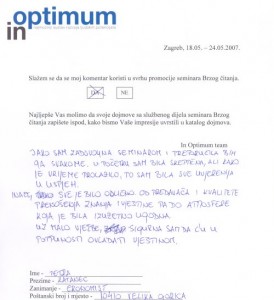 in optimum
Zagreb, 18.05. - 24.05.2007.
Slažem se da se moj komentar koristi u svrhu promocije seminara Brzog čitanja.
DA NE
Najljepše Vas molimo da svoje dojmove sa službenog dijela seminara Brzog
čitanja zapišete ispod, kako bismo Vaše impresije uvrstili u katalog dojmova.
In Optimum team
JAKO SAM ZADOVOLJNA SEMINAROM I PREPORUČILA BIH
GA SVAKOME. U POČETKU SAM BILA SKEPTIČNA, ALI KAKO
JE VRIJEME PROLAZILO, TO SAM BILA SVE UVJERENIJA
U USPJEH.
INAČE, SVE JE BILO ODLIČNO OD PREDAVAČA I KVALITETE
PRENOŠENJA ZNANJA I VJEŠTINE PA DO ATMOSFERE
KOJA JE BILA IZUZETNO UGODNA.
UZ MALO VJEŽBE, SIGURNA SAM DA ĆU U
POTPUNOSTI OVLADATI VJEŠTINOM.
Ime: PETRA
Prezime:
Zanimanje: EKONOMIST
Poštanski broj i mjesto: 10410 VELIKA GORICA